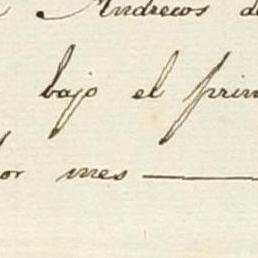 Andrews de
bajo el prin
por mes